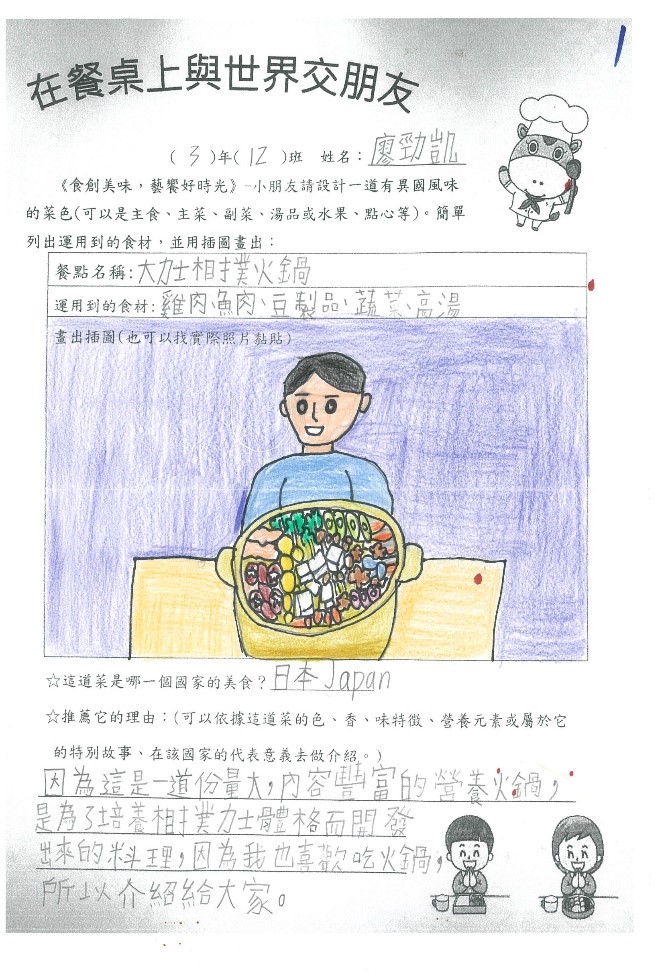 1
在餐桌上與世界交朋友
( 3 )年( 12 )班 姓名：廖勁凱
《食創美味，藝饗好時光》-小朋友請設計一道有異國風味
的菜色(可以是主食、主菜、副菜、湯品或水果、點心等)。簡單
列出運用到的食材，並用插圖畫出：
餐點名稱:大力士相撲火鍋
運用到的食材:雞肉、魚肉、豆製品、蔬菜、高湯
畫出插圖(也可以找實際照片黏貼)
☆這道菜是哪一個國家的美食？日本 Japan
☆推薦它的理由：(可以依據這道菜的色、香、味特徵、營養元素或屬於它
的特別故事、在該國家的代表意義去做介紹。)
因為這是一道份量大，內容豐富的營養火鍋，
是為了培養相撲力士體格而開發
出來的料理，因為我也喜歡吃火鍋，
所以介紹給大家。